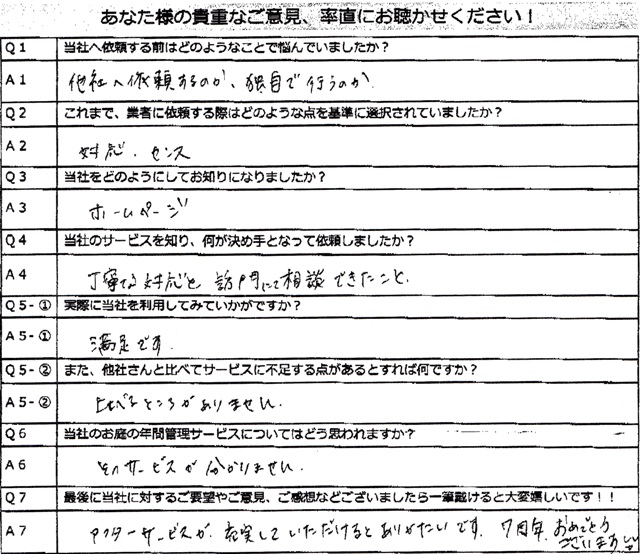 あなた様の貴重なご意見、率直にお聴かせください！
Q1 当社へ依頼する前はどのようなことで悩んでいましたか？
A1 他社へ依頼するのか、独自で行うのか
Q2 これまで、業者に依頼する際はどのような点を基準に選択されていましたか？
A2 対応、センス
Q3 当社をどのようにしてお知りになりましたか？
A3 ホームページ
Q4 当社のサービスを知り、何が決め手となって依頼しましたか？
A4 丁寧な対応と訪門にて相談できたこと.
Q5-① 実際に当社を利用してみていかがですか？
A5-① 満足です.
Q5-② また、他社さんと比べてサービスに不足する点があるとすれば何ですか？
A5-② 比べるところがありません.
Q6 当社のお庭の年間管理サービスについてはどう思われますか？
A6 サービスが分かりません.
Q7 最後に当社に対するご要望やご意見、ご感想などございましたら一筆戴けると大変嬉しいです！！
A7 アフターサービスが、充実していただけるとありがたいです. 7周年、おめでとう
ございます